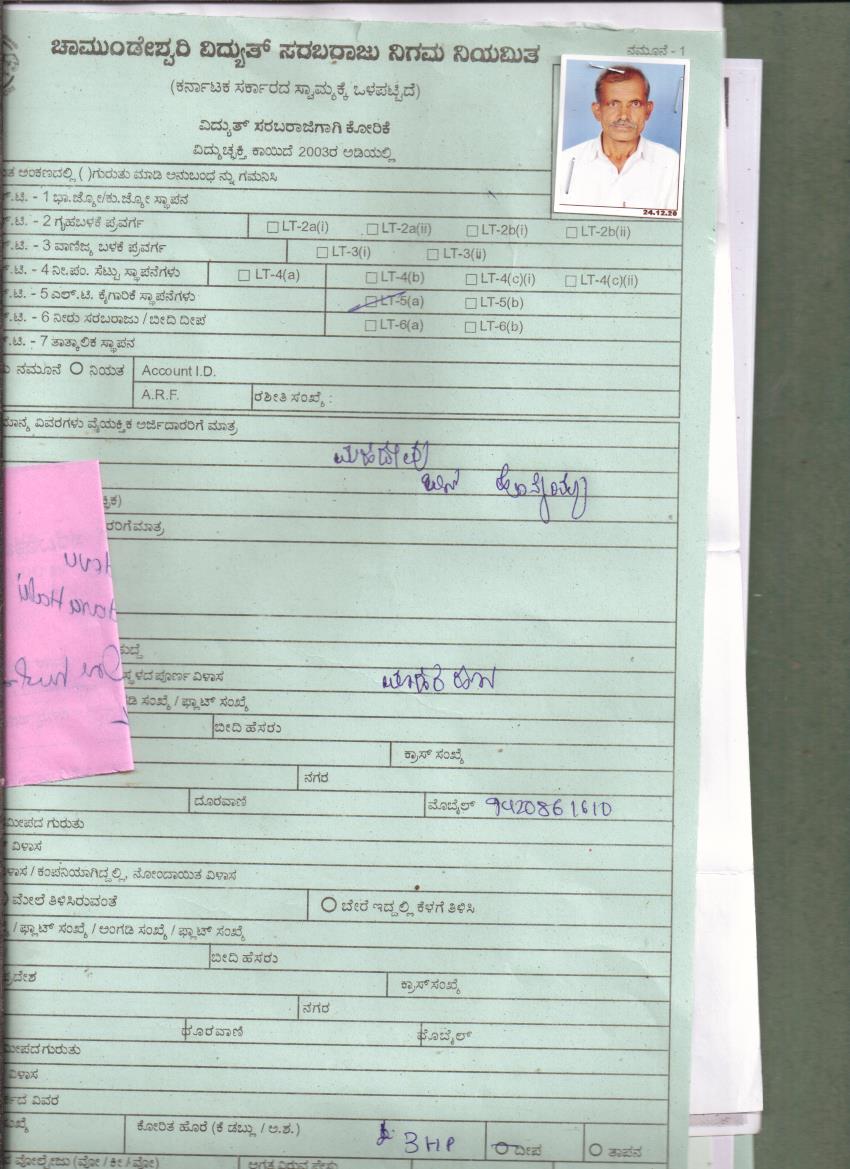 ಚಾಮುಂಡೇಶ್ವರಿ ವಿದ್ಯುತ್ ಸರಬರಾಜು ನಿಗಮ ನಿಯಮಿತ
ನಮೂನೆ - 1
(ಕರ್ನಾಟಕ ಸರ್ಕಾರದ ಸ್ವಾಮ್ಯಕ್ಕೆ ಒಳಪಟ್ಟಿದೆ)
ವಿದ್ಯುತ್ ಸರಬರಾಜಿಗಾಗಿ ಕೋರಿಕೆ
ವಿದ್ಯುಚ್ಛಕ್ತಿ ಕಾಯಿದೆ 2003ರ ಅಡಿಯಲ್ಲಿ
24.12.20
ಅಂಕಣದಲ್ಲಿ ( )ಗುರುತು ಮಾಡಿ ಅನುಬಂಧ ನ್ನು ಗಮನಿಸಿ
.ಟಿ. - 1 ಭಾ.ಜ್ಯೋ/ಕು.ಜ್ಯೋ ಸ್ಥಾಪನ
.ಟಿ. - 2 ಗೃಹಬಳಕೆ ಪ್ರವರ್ಗ LT-2a(i) LT-2a(ii) LT-2b(i) LT-2b(ii)
.ಟಿ. - 3 ವಾಣಿಜ್ಯ ಬಳಕೆ ಪ್ರವರ್ಗ LT-3(i) LT-3(ii)
.ಟಿ. - 4 ನೀ.ಪಂ. ಸೆಟ್ಟು ಸ್ಥಾಪನೆಗಳು LT-4(a) LT-4(b) LT-4(c)(i) LT-4(c)(ii)
.ಟಿ. - 5 ಎಲ್.ಟಿ. ಕೈಗಾರಿಕೆ ಸ್ಥಾಪನೆಗಳು LT-5(a) LT-5(b)
.ಟಿ. - 6 ನೀರು ಸರಬರಾಜು / ಬೀದಿ ದೀಪ LT-6(a) LT-6(b)
.ಟಿ. - 7 ತಾತ್ಕಾಲಿಕ ಸ್ಥಾಪನ
ನಮೂನೆ ನಿಯತ Account I.D.
A.R.F. ರಶೀತಿ ಸಂಖ್ಯೆ :
ವಿವರಗಳು ವೈಯಕ್ತಿಕ ಅರ್ಜಿದಾರರಿಗೆ ಮಾತ್ರ
ಮಹದೇವು
ಬಿನ್
ರರಿಗೆ ಮಾತ್ರ
ಸ್ಥಳದ ಪೂರ್ಣ ವಿಳಾಸ
ಸಂಖ್ಯೆ / ಫ್ಲಾಟ್ ಸಂಖ್ಯೆ
ಬೀದಿ ಹೆಸರು
ಕ್ರಾಸ್ ಸಂಖ್ಯೆ
ನಗರ
ದೂರವಾಣಿ ಮೊಬೈಲ್ 9420861610
ಮೀಪದ ಗುರುತು
ವಿಳಾಸ
ಳಾಸ / ಕಂಪನಿಯಾಗಿದ್ದಲ್ಲಿ, ನೋಂದಾಯಿತ ವಿಳಾಸ
ಮೇಲೆ ತಿಳಿಸಿರುವಂತೆ ಬೇರೆ ಇದ್ದಲ್ಲಿ ಕೆಳಗೆ ತಿಳಿಸಿ
/ ಫ್ಲಾಟ್ ಸಂಖ್ಯೆ / ಅಂಗಡಿ ಸಂಖ್ಯೆ / ಫ್ಲಾಟ್ ಸಂಖ್ಯೆ
ಬೀದಿ ಹೆಸರು
ಪ್ರದೇಶ ಕ್ರಾಸ್ ಸಂಖ್ಯೆ
ನಗರ
ದೂರವಾಣಿ ಮೊಬೈಲ್
ಮೀಪದ ಗುರುತು
ವಿಳಾಸ
ವಿವರ
ಕೋರಿತ ಹೊರೆ (ಕೆ ಡಬ್ಲು / ಅ.ಶ.) 3 HP ದೀಪ ತಾಪನ